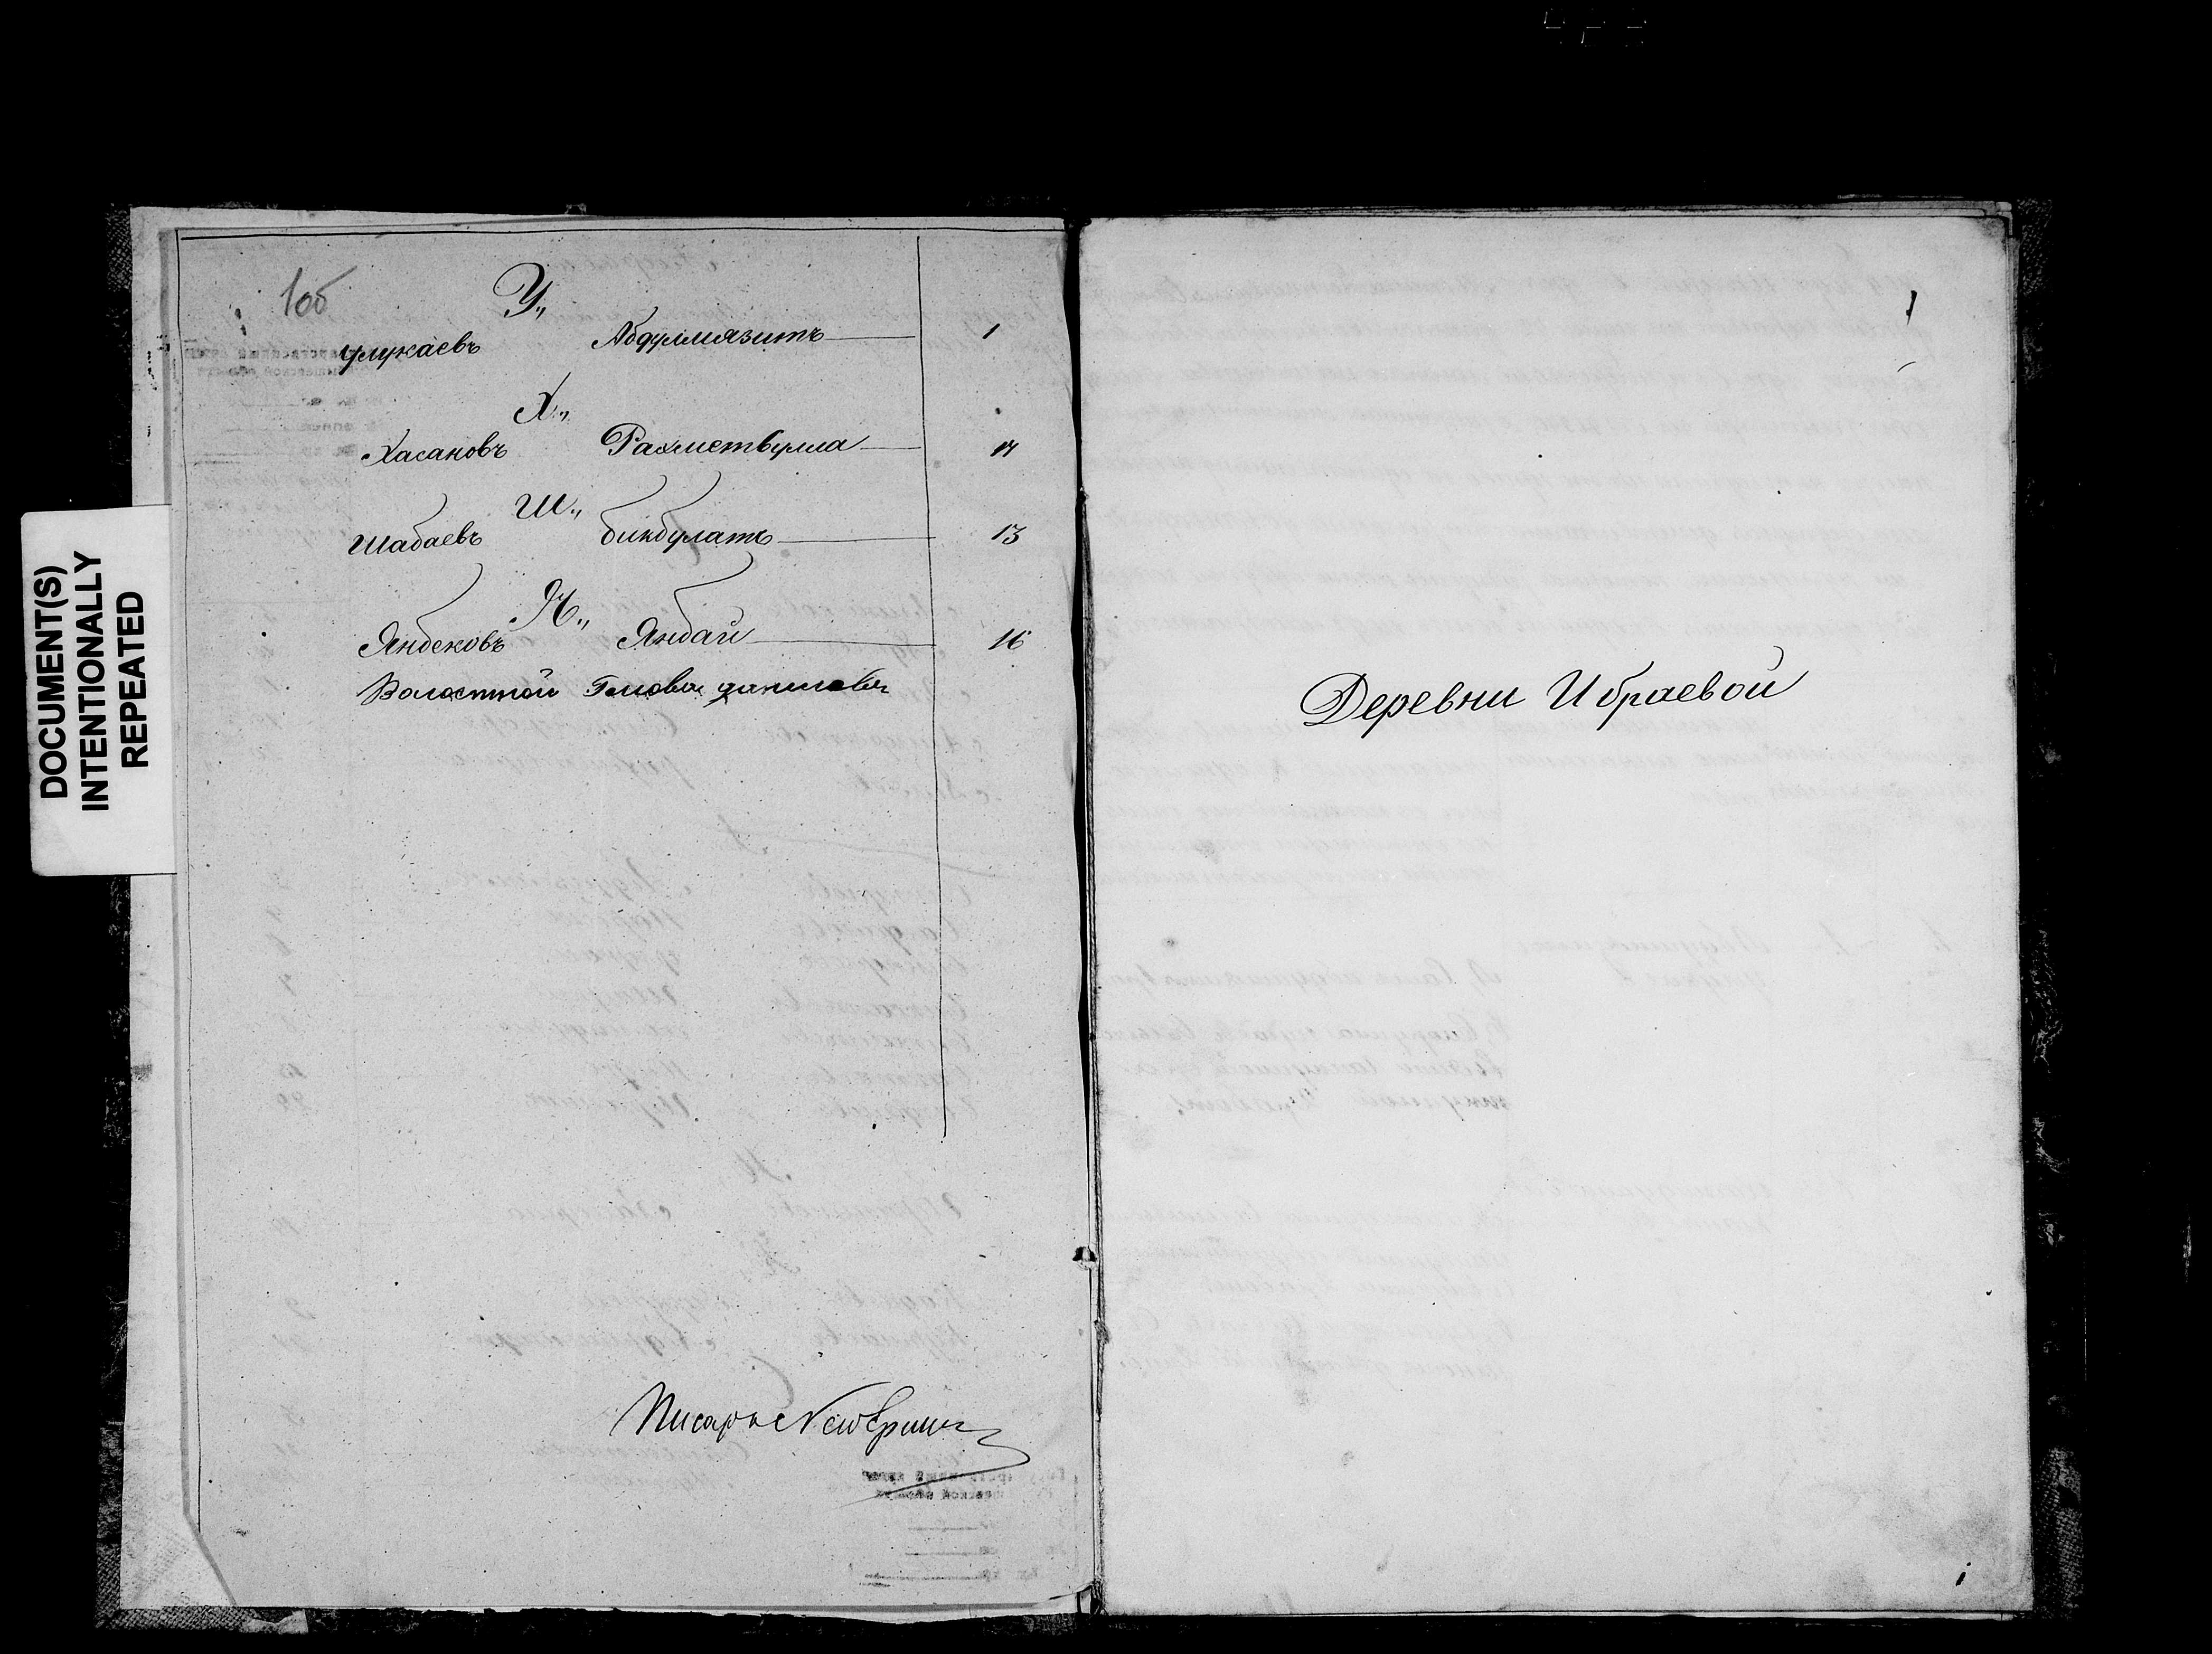 DOCUMENT(S)
INTENTIONALLY
REPEATED
1об
У„
Улукаевъ Абдулмязитъ 1
Х„
Хасановъ Рахметвулла 14
Ш„
Шабаевъ бикбулатъ 13
Я„
Янбековъ Янбай 16
Волостной Голова даниловъ
Писарь
1
Деревни Ибраевой